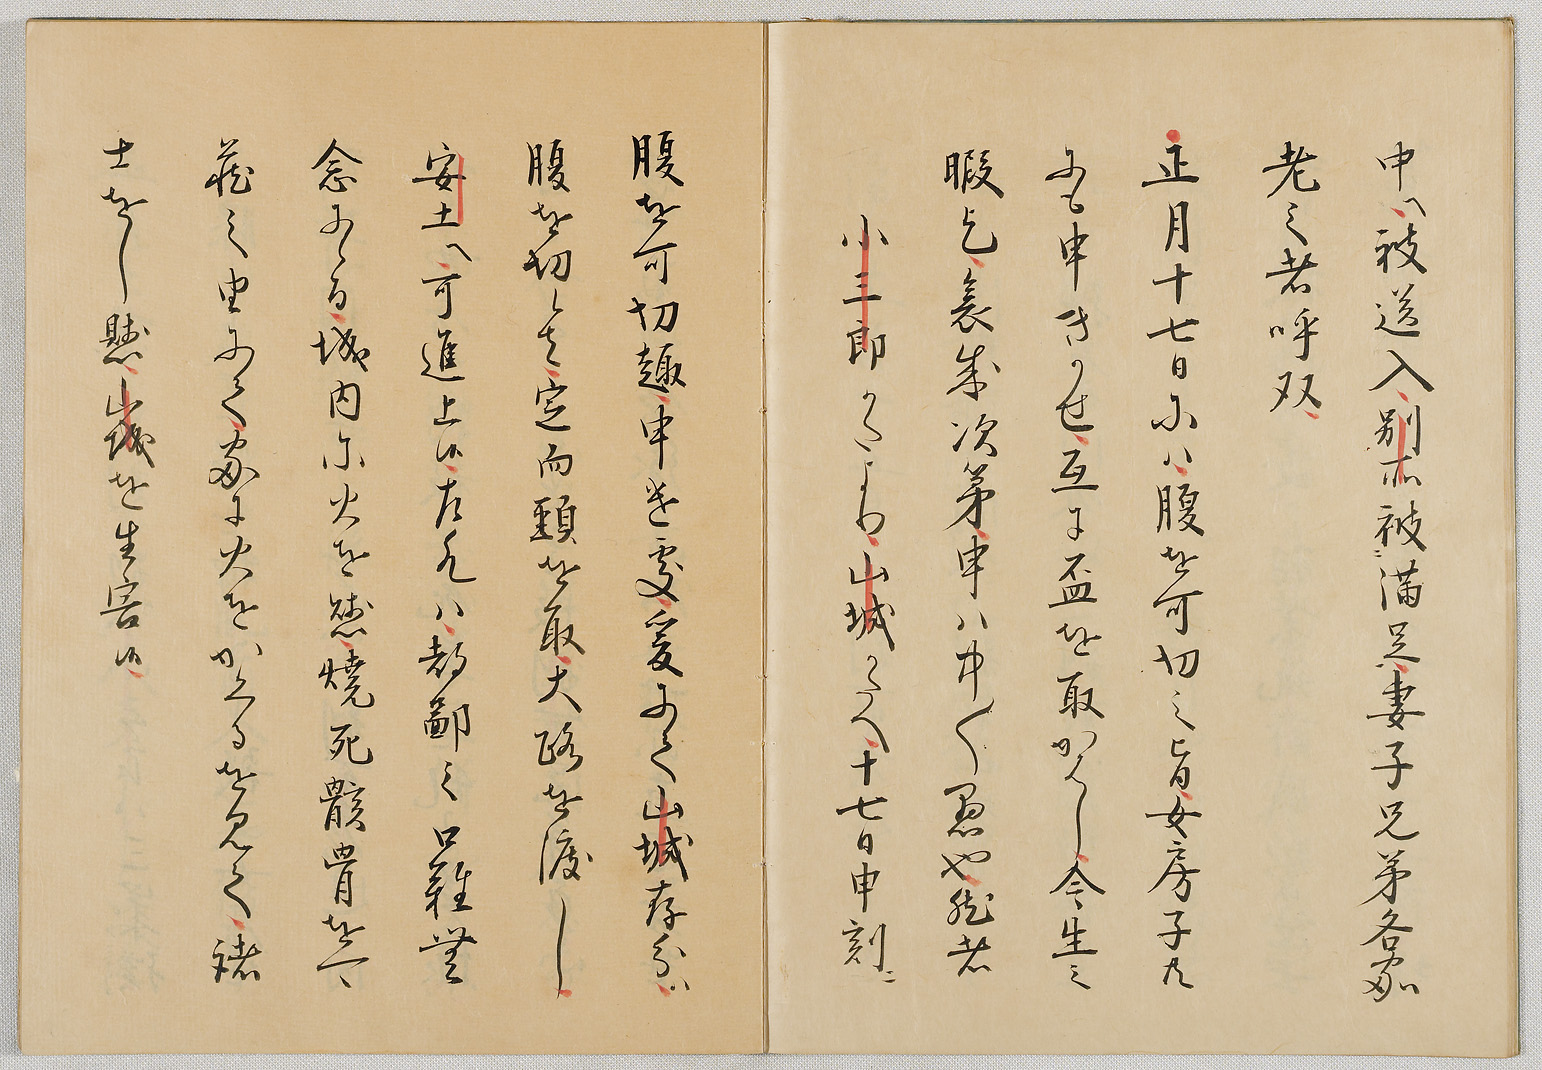 申へ被送入別所被満足妻子兄弟各家
老之者呼双
正月十七日ニハ腹を可切之旨女房子共
ニも申きかせ互に盃を取かはし今生之
暇乞哀成次第申ハ中〱愚也然者
小三郎かたより山城かたへ十七日申刻ニ
腹を可切趣申遣処爰にて山城存分ハ
腹を切候ハ定而頸を取大路を渡し
安土へ可進上候左候ハ都鄙之口難無
念にある間城内に火を懸焼死骸骨を可
蔵之由にて家に火をかくるを見て諸
士をし懸山城を生害候